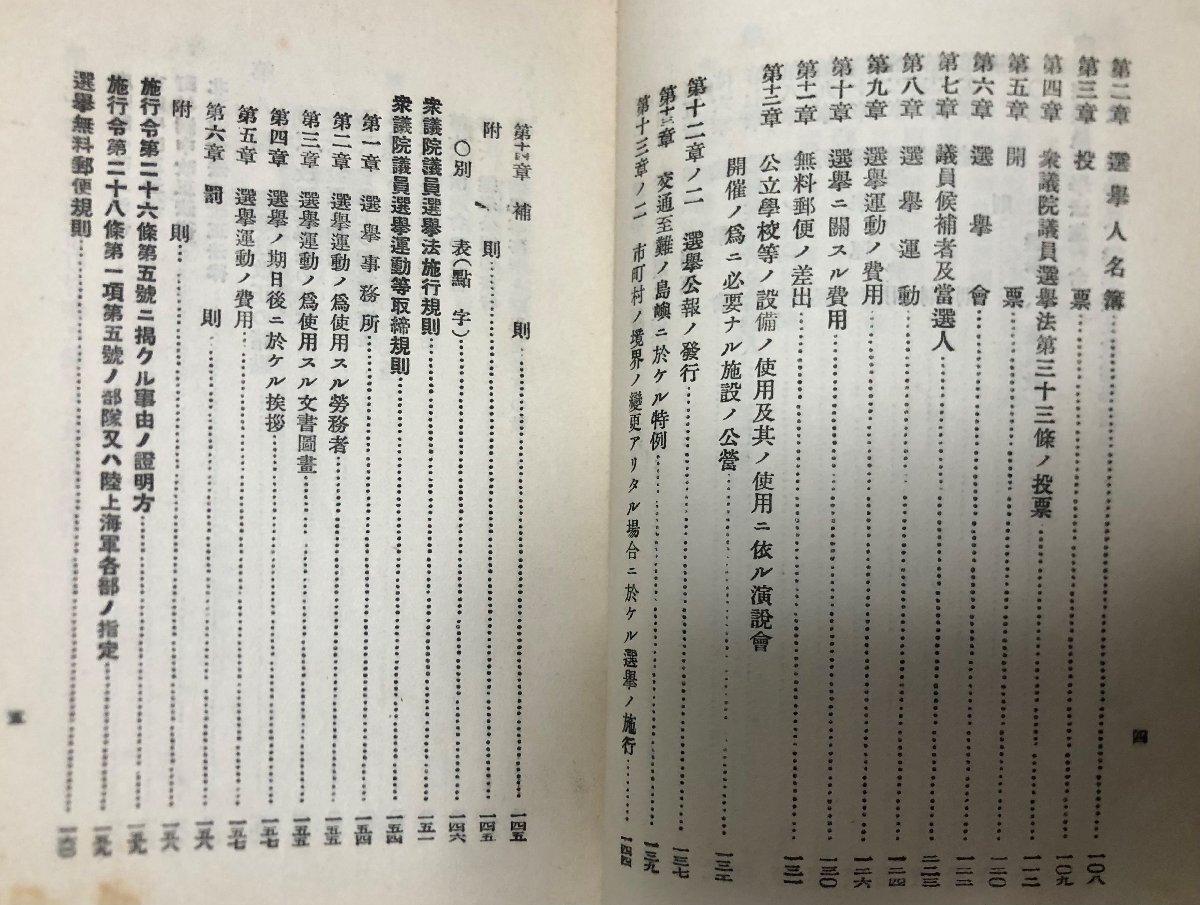 第二章 選擧人名簿……一〇八
第三章 投票……一〇九
第四章 衆議院議員選擧法第三十三條ノ投票……一一二
第五章 開票……一二〇
第六章 選擧會……一二二
第七章 議員候補者及當選人……一二三
第八章 選擧運動……一二四
第九章 選擧運動ノ費用……一二六
第十章 選擧ニ關スル費用……一三〇
第十一章 無料郵便ノ差出……一三一
第十二章 公立學校等ノ設備ノ使用及其ノ使用ニ依ル演說會
開催ノ爲ニ必要ナル施設ノ公營……
第十二章ノ二 選擧公報ノ發行……一三七
第十三章 交通至難ノ島嶼ニ於ケル特例……一三九
第十三章ノ二 市町村ノ境界ノ變更アリタル場合ニ於ケル選擧ノ施行……一四四
四
第十四章 補則……一四五
附則……一四五
〇別表(點字)……一四六
衆議院議員選擧法施行規則……一五一
衆議院議員選擧運動等取締規則……一五四
第一章 選擧事務所……一五四
第二章 選擧運動ノ爲使用スル勞務者……一五五
第三章 選擧運動ノ爲使用スル文書圖畫……一五五
第四章 選擧ノ期日後ニ於ケル挨拶……一五七
第五章 選擧運動ノ費用……一五七
第六章 罰則……一五八
附則……一五八
施行令第二十六條第五號ニ揭クル事由ノ證明方……一五九
施行令第二十八條第一項第五號ノ部隊又ハ陸上海軍各部ノ指定……一五九
選擧無料郵便規則……一六〇
五